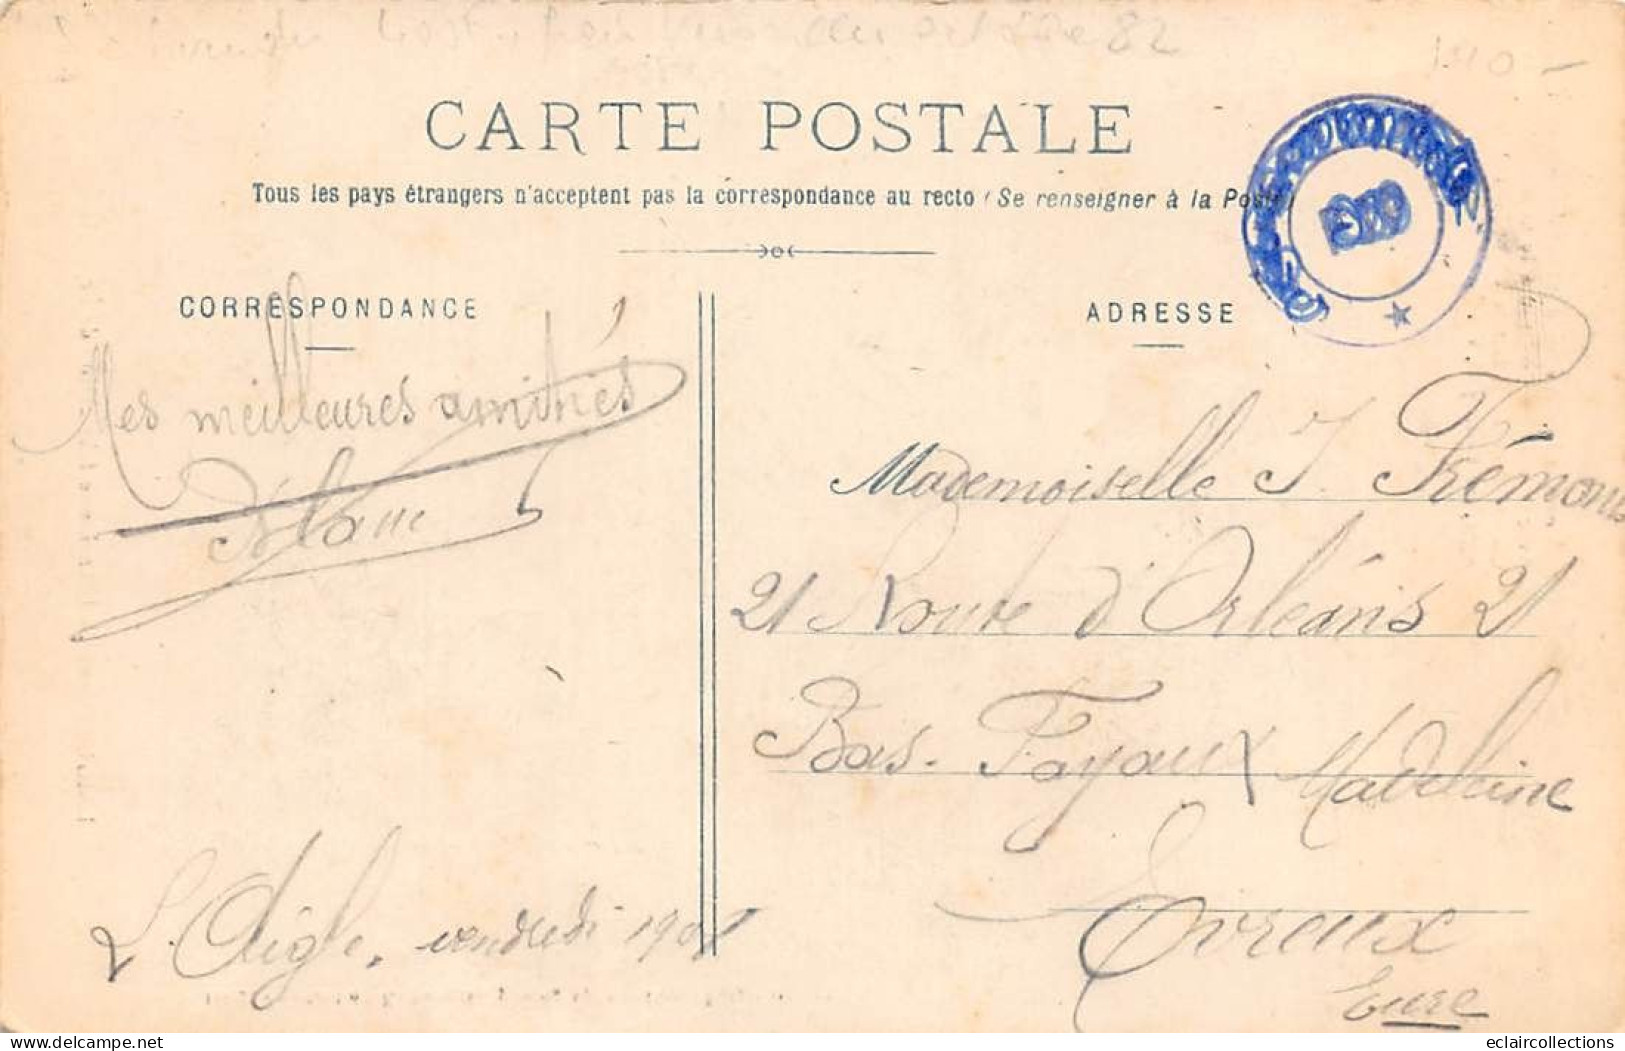 82
CARTE POSTALE
Tous les pays étrangers n'acceptent pas la correspondance au recto (Se renseigner à la Poste)
CORRESPONDANCE
ADRESSE
Mes meilleures amitiés
Mademoiselle J Frémont
21 Route d'Orléans 21
Bas-Fayaux Madeleine
Evreux
Eure
L'Aigle, vendredi 1908
eclaircollections